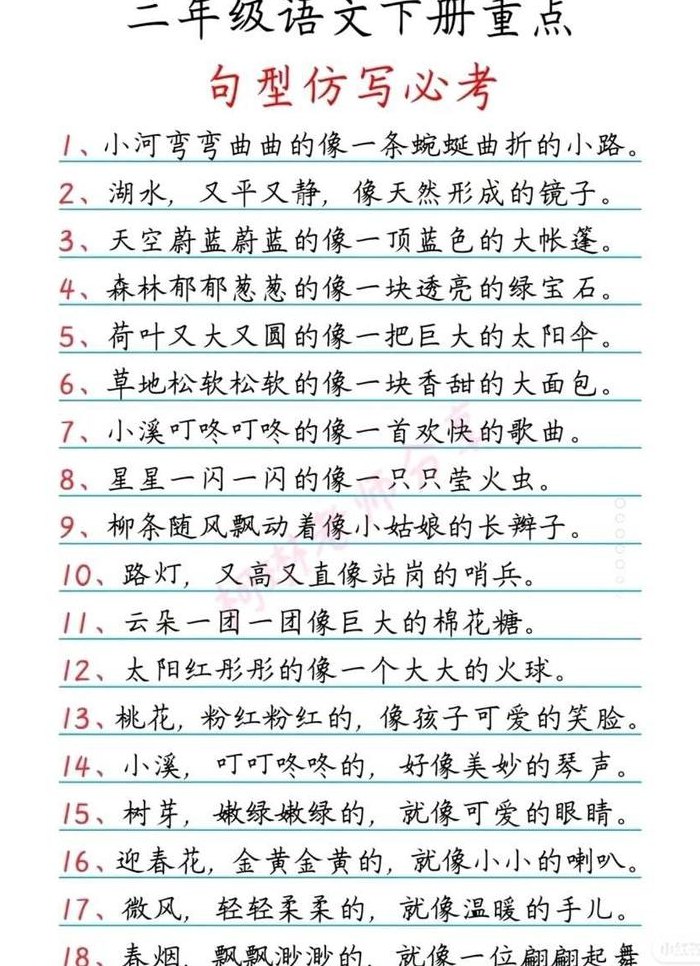 二年级语文下册重点
句型仿写必考
1、小河弯弯曲曲的像一条蜿蜒曲折的小路。
2、湖水，又平又静，像天然形成的镜子。
3、天空蔚蓝蔚蓝的像一顶蓝色的大帐蓬。
4、森林郁郁葱葱的像一块透亮的绿宝石。
5、荷叶又大又圆的像一把巨大的太阳伞。
6、草地松软松软的像一块香甜的大面包。
7、小溪叮咚叮咚的像一首欢快的歌曲。
8、星星一闪一闪的像一只只萤火虫。
9、柳条随风飘动着像小姑娘的长辫子。
10、路灯，又高又直像站岗的哨兵。
11、云朵一团一团像巨大的棉花糖。
12、太阳红彤彤的像一个大大的火球。
13、桃花，粉红粉红的，像孩子可爱的笑脸。
14、小溪，叮叮咚咚的，好像美妙的琴声。
15、树芽，嫩绿嫩绿的，就像可爱的眼睛。
16、迎春花，金黄金黄的，就像小小的喇叭。
17、微风，轻轻柔柔的，就像温暖的手儿。
18、春烟，飘飘渺渺的，就像一位翩翩起舞